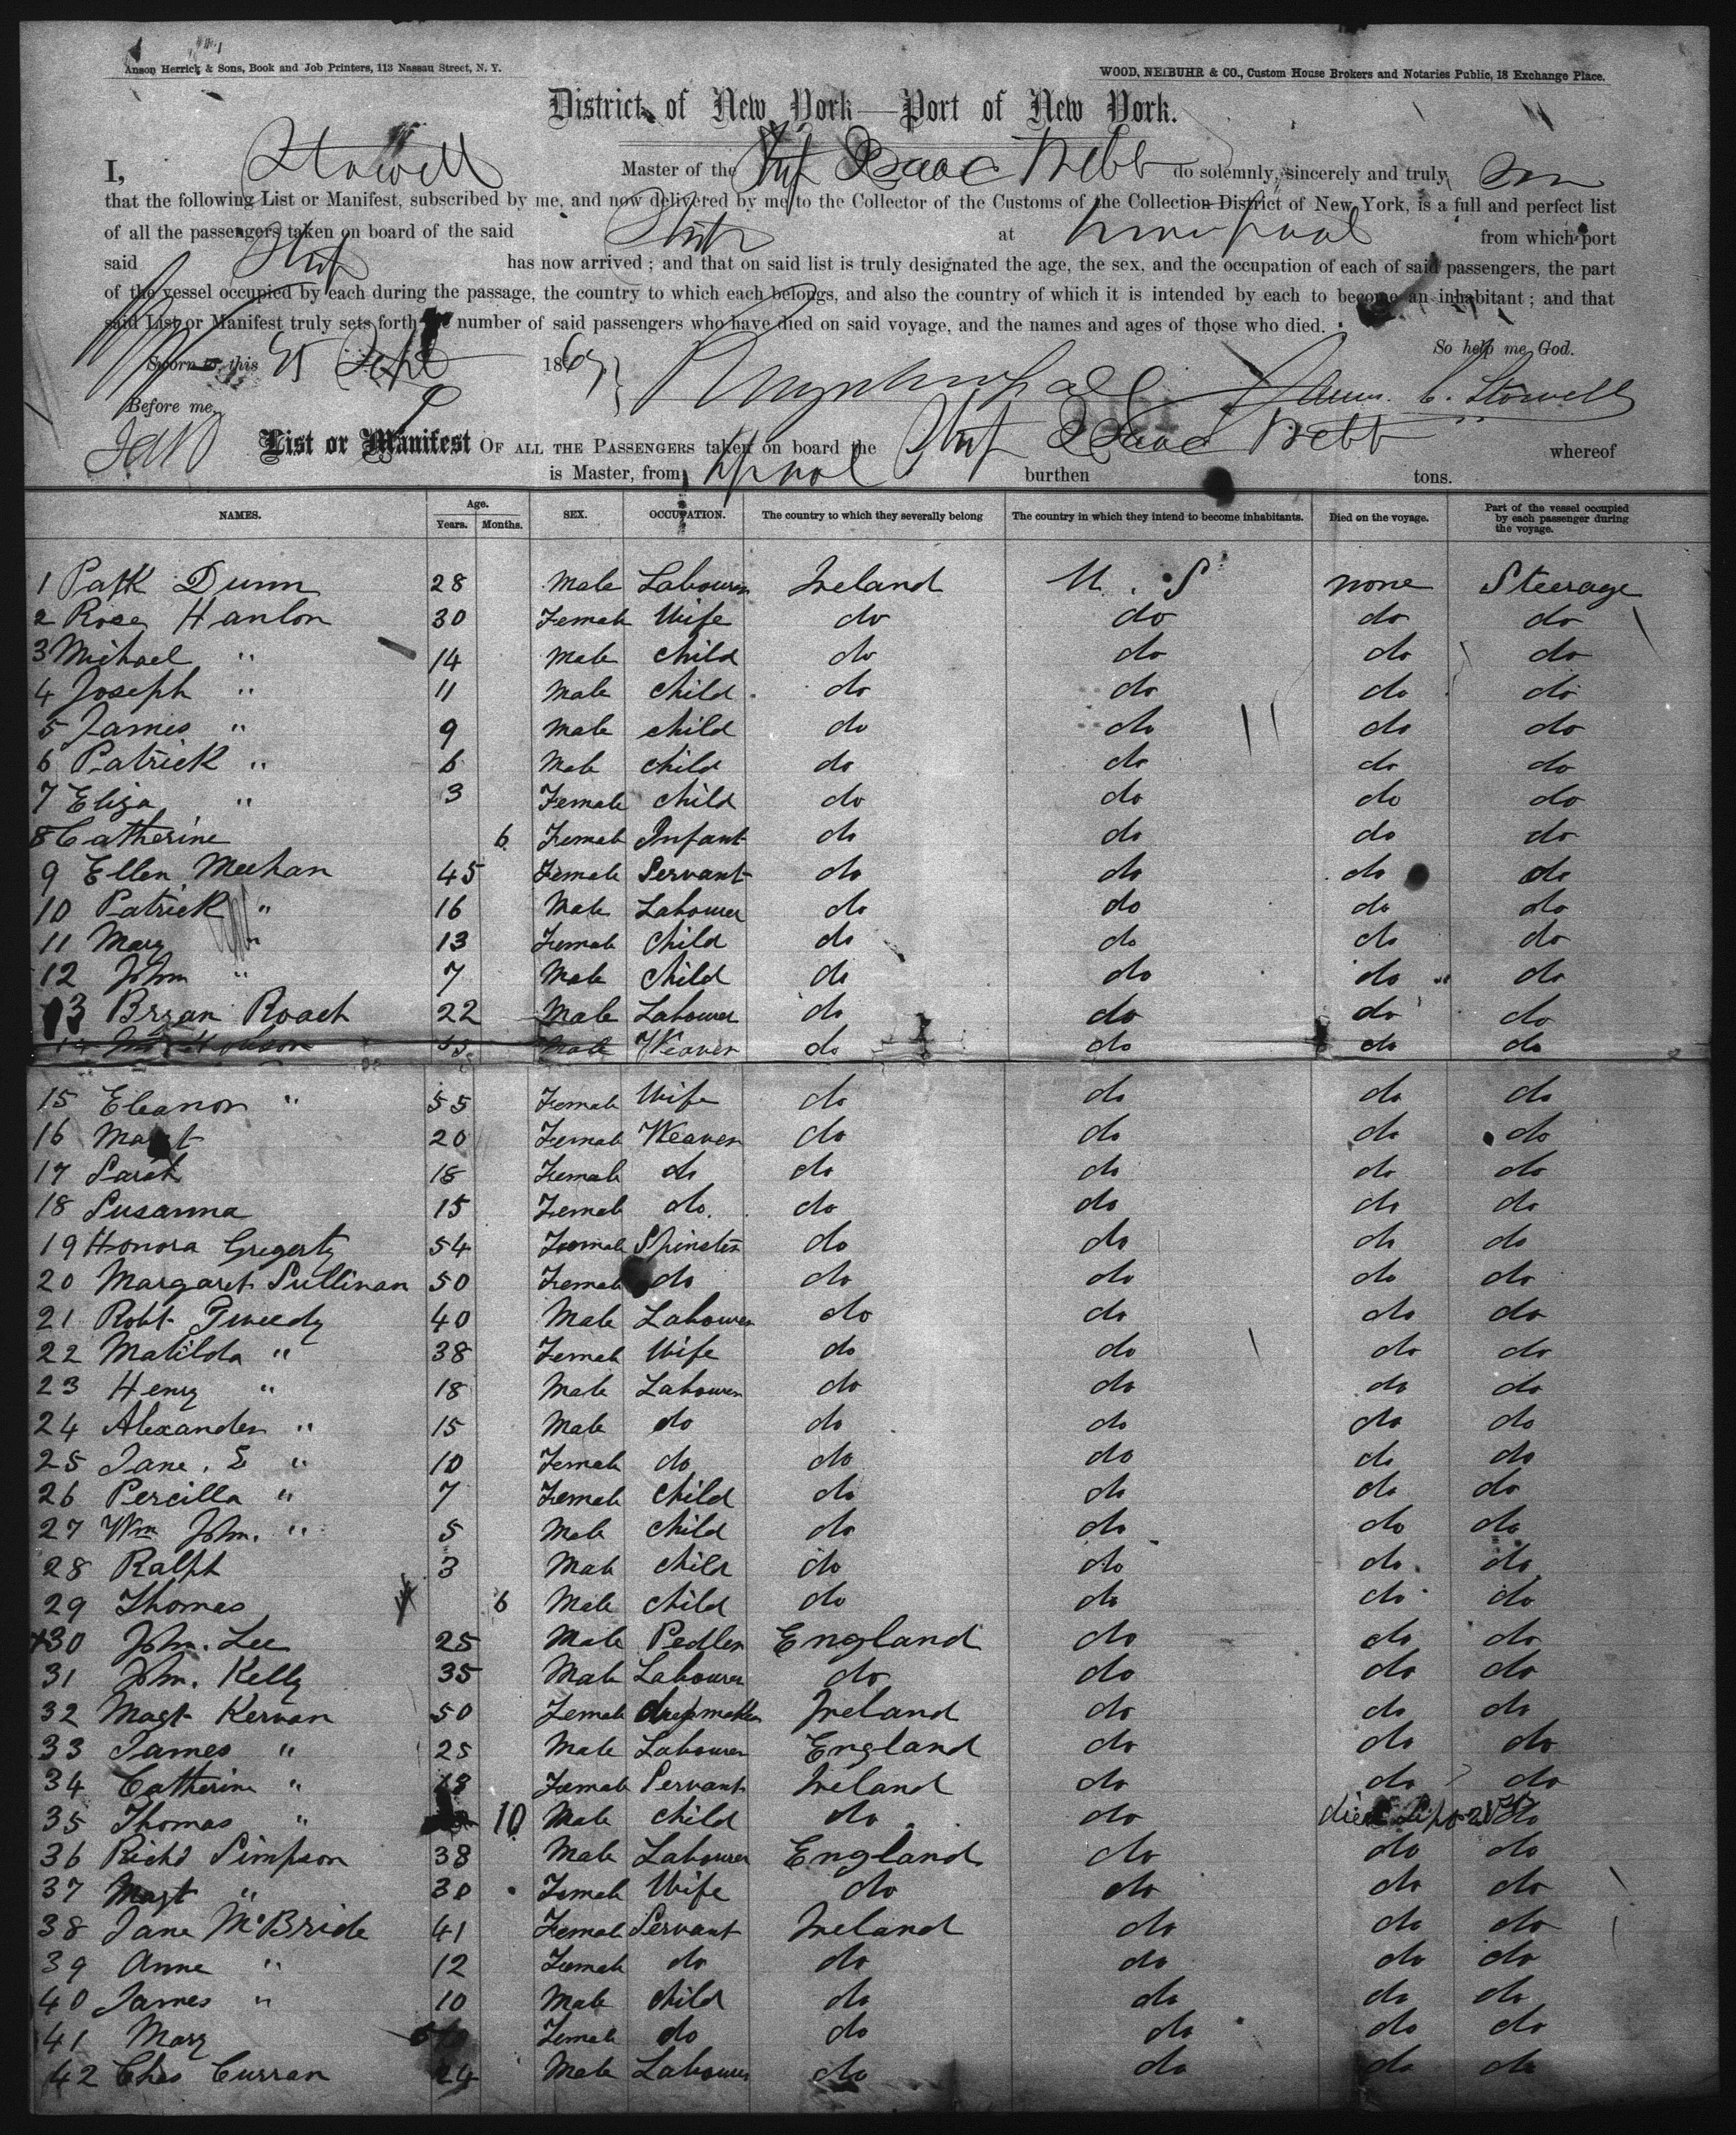 Anson Herrick & Sons, Book and Job Printers, 113 Nassau Street, N. Y.
WOOD, NEIBUHR & CO., Custom House Brokers and Notaries Public, 18 Exchange Place.
District of New York—Port of New York.
I, Stowell Master of the Ship Isaac Webb do solemnly, sincerely and truly
that the following List or Manifest, subscribed by me, and now delivered by me to the Collector of the Customs of the Collection District of New York, is a full and perfect list
of all the passengers taken on board of the said Ship at Liverpool from which port
said Ship has now arrived ; and that on said list is truly designated the age, the sex, and the occupation of each of said passengers, the part
of the vessel occupied by each during the passage, the country to which each belongs, and also the country of which it is intended by each to become an inhabitant ; and that
said List or Manifest truly sets forth number of said passengers who have died on said voyage, and the names and ages of those who died.
So help me God.
Sworn to this 25 Sept 186
Before me, Stowell
List or Manifest OF ALL THE PASSENGERS taken on board the Ship Isaac Webb whereof
is Master, from Lpool burthen tons.
NAMES. Age. Years. Months. SEX. OCCUPATION. The country to which they severally belong The country in which they intend to become inhabitants. Died on the voyage. Part of the vessel occupied by each passenger during the voyage.
1 Patk Dunn 28 Male Labourer Ireland U . S none Steerage
2 Rose Hanlon 30 Female Wife do do do do
3 Michael " 14 Male Child do do do do
4 Joseph " 11 Male Child do do do do
5 James " 9 Male Child do do do do
6 Patrick " 6 Male Child do do do do
7 Eliza " 3 Female Child do do do do
8 Catherine 6 Female Infant do do do do
9 Ellen Meehan 45 Female Servant do do do do
10 Patrick " 16 Male Labourer do do do do
11 Mary " 13 Female Child do do do do
12 John " 7 Male Child do do do do
13 Bryan Roach 22 Male Labourer do do do do
14 Male Weaver do do do do
15 Eleanor " 55 Female Wife do do do do
16 Magt 20 Female Weaver do do do do
17 Sarah 18 Female do do do do do
18 Susanna 15 Female do. do do do do
19 Honora Gregerty 54 Female Spinster do do do do
20 Margaret Sullivan 50 Female do do do do do
21 Robt Tweedy 40 Male Labourer do do do do
22 Matilda " 38 Female Wife do do do do
23 Henry " 18 Male Labourer do do do do
24 Alexander " 15 Male do do do do do
25 Jane. E " 10 Female do do do do do
26 Percilla " 7 Female Child do do do do
27 Wm John. " 5 Male Child do do do do
28 Ralph 3 Male Child do do do do
29 Thomas 6 Male Child do do do do
30 John. Lee 25 Male Pedler England do do do
31 John. Kelly 35 Male Labourer do do do do
32 Magt Kervan 50 Female dressmaker Ireland do do do
33 James " 25 Male Labourer England do do do
34 Catherine " Female Servant Ireland do do do
35 Thomas " 10 Male Child do do died Sept 21st do
36 Richd Simpson 38 Male Labourer England do do do
37 Magt " 30 Female Wife do do do do
38 Jane McBride 41 Female Servant Ireland do do do
39 Anne " 12 Female do do do do do
40 James " 10 Male Child do do do do
41 Mary Female do do do do do
42 Chas Curran 24 Male Labourer do do do do